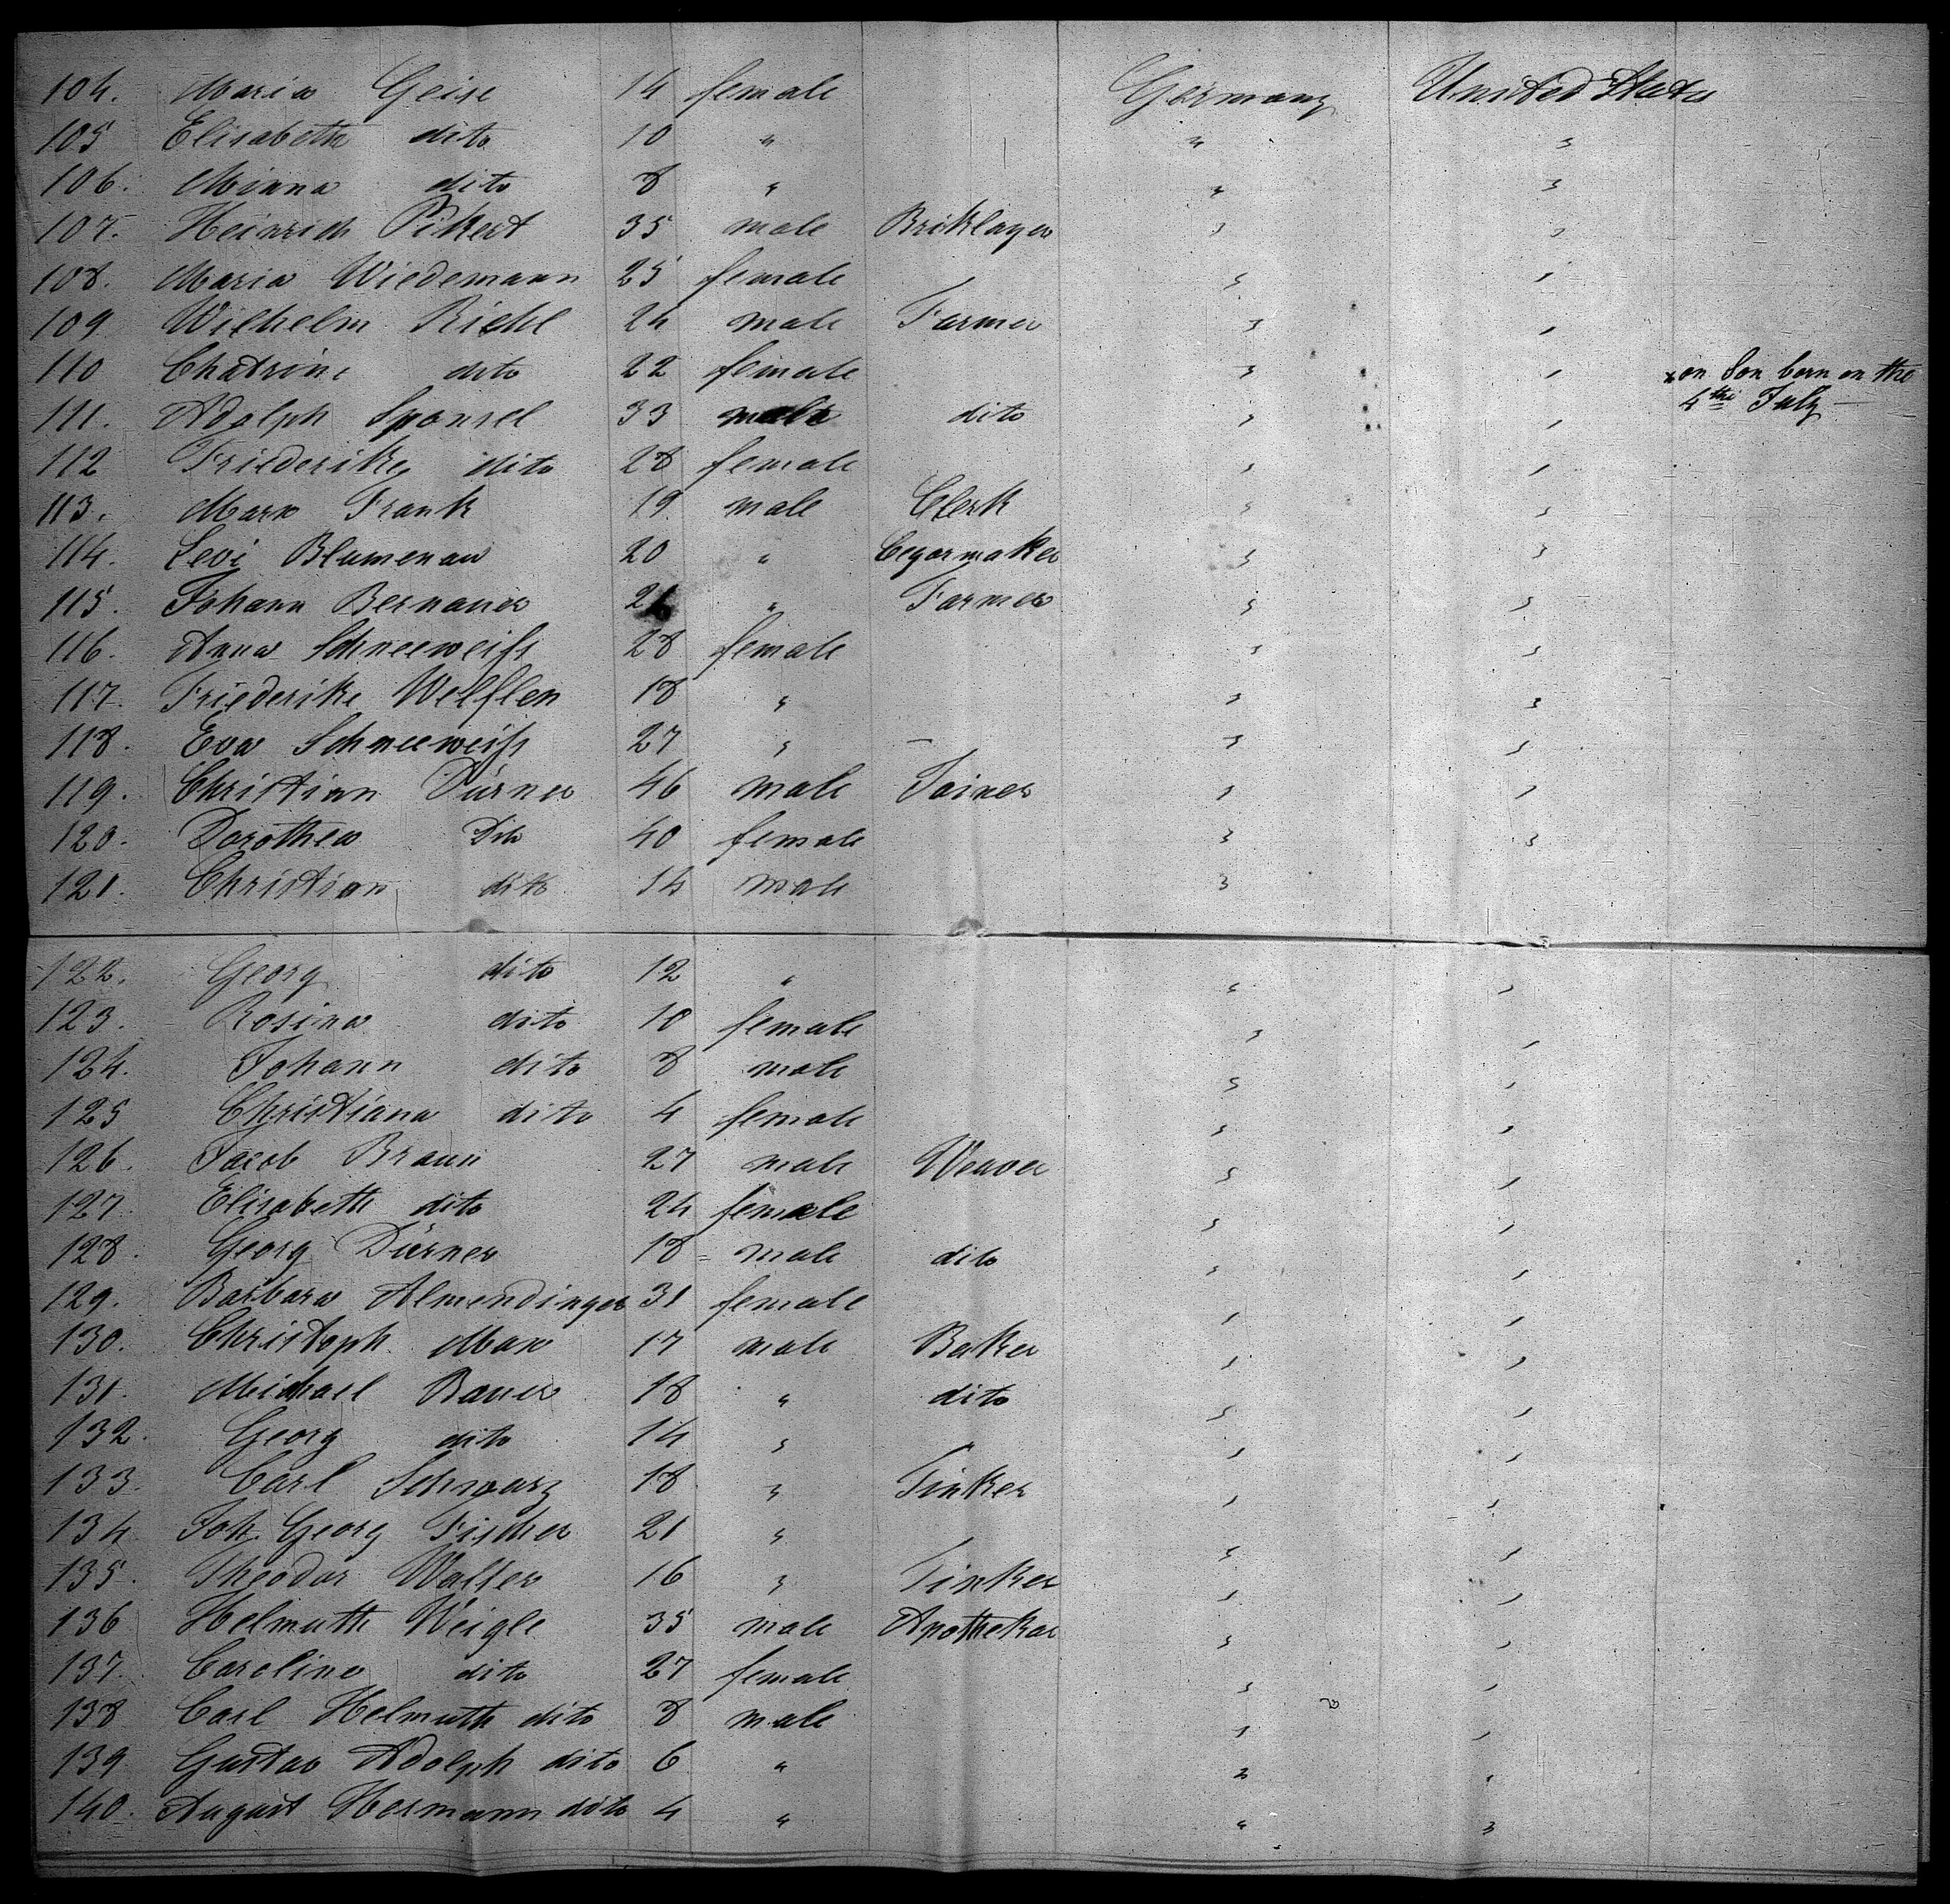 104. Maria Geise 14 female Germany United States
105 Elisabeth dito 10 " " "
106. Minna dito 8 " " "
107. Heinrich Pikert 35 male Briklayer " "
108. Maria Wiedemann 25 female " "
109 Wilhelm Riehl 24 male Farmer " "
110 Chatrine dito 22 female " " x on Son born on the
111. Adolph Sponsel 33 male dito " " 4the July —
112 Friederike dito 28 female " "
113. Marx Frank 19 male Clerk " "
114. Levi Blumenau 20 " Cegarmaker " "
115. Johann Bernauer 21 " Farmer " "
116. Anna Schneeweiſs 28 female " "
117. Friederike Welflen 18 " " "
118. Eva Schneeweiſs 27 " — " "
119. Christian Dürner 46 male Joiner " "
120. Dorothea Dito 40 female " "
121. Christian dito 14 male "
122. Georg dito 12 " " "
123. Rosina dito 10 female " "
124. Johann dito 8 male " "
125 Christiana dito 4 female " "
126. Jacob Braun 27 male Weaver " "
127. Elisabeth dito 24 female " "
128. Georg Dürner 18 male dito " "
129. Barbara Almendinger 31 female " "
130. Christoph Max 17 male Baker " "
131. Michael Bauer 18 " dito " "
132. Georg dito 14 " " "
133. Carl Schwarz 18 " Tinker " "
134 Joh. Georg Fischer 21 " " "
135. Theodor Walter 16 " Tinker " "
136 Helmuth Weigle 35 male Apothekar " "
137. Carolina dito 27 female " "
138 Carl Helmuth dito 8 male " "
139 Gustav Adolph dito 6 " " "
140. August Hermann dito 4 " " "